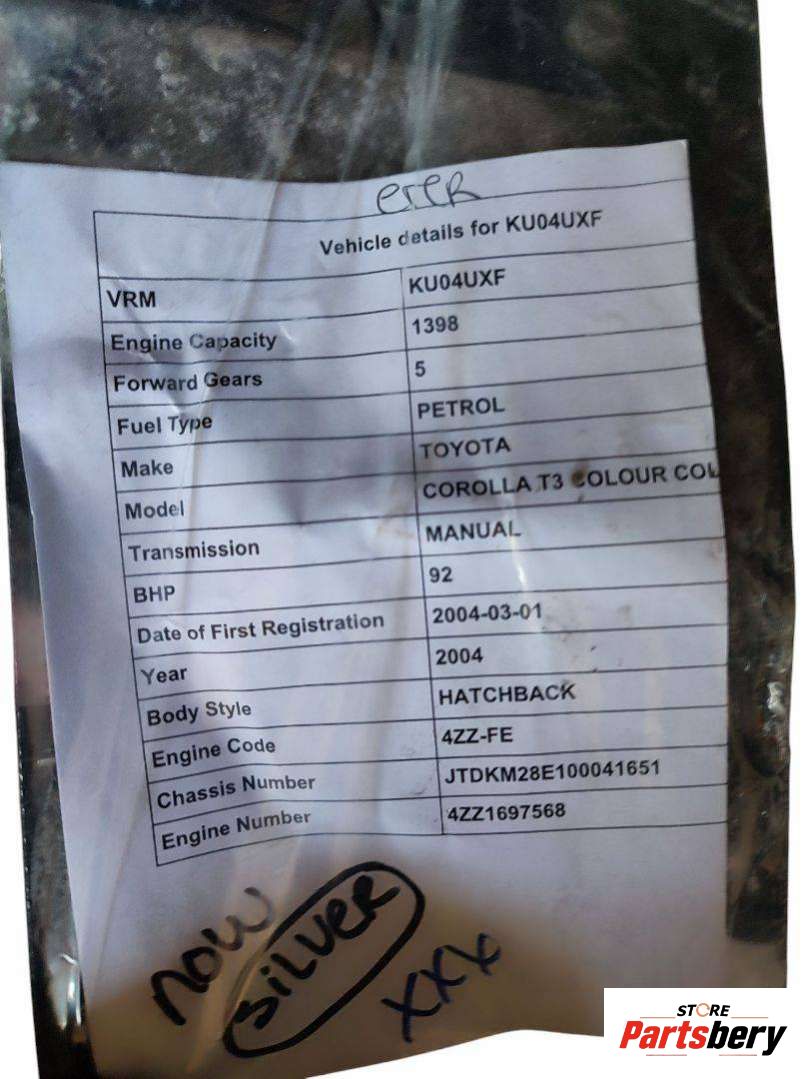 Vehicle details for KU04UXF
VRM KU04UXF
Engine Capacity 1398
Forward Gears 5
Fuel Type PETROL
Make TOYOTA
Model COROLLA T3 COLOUR COL
Transmission MANUAL
BHP 92
Date of First Registration 2004-03-01
Year 2004
Body Style HATCHBACK
Engine Code 4ZZ-FE
Chassis Number JTDKM28E100041651
Engine Number 4ZZ1697568
now
SILVER
xxx
STORE
Partsbery